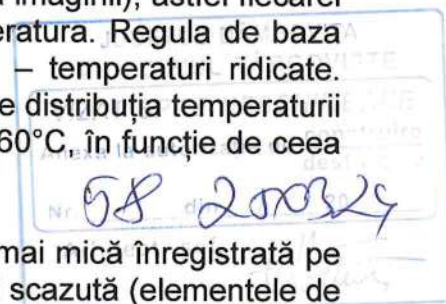 a imaginii), astfel fiecărei
eratura. Regula de baza
– temperaturi ridicate.
e distribuția temperaturii
60°C, în funcție de ceea
Nr.
58 200324
mai mică înregistrată pe
scazută (elementele de